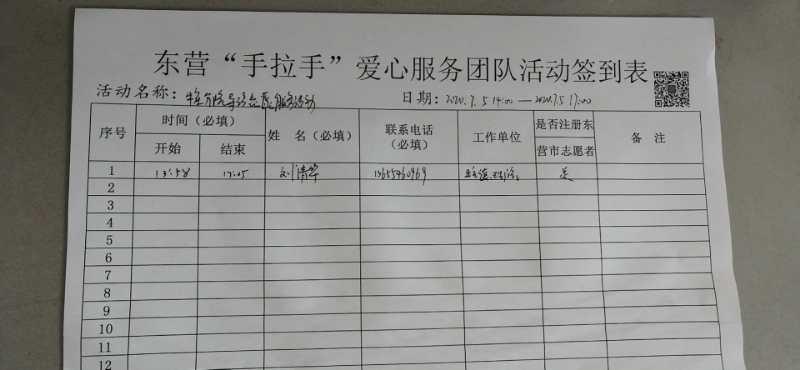 东营“手拉手”爱心服务团队活动签到表
活动名称： 服务活动 日期：2020.7.5 14:00 — 2020.7.5 17:00
序号 时间（必填） 姓 名（必填） 联系电话（必填） 工作单位 是否注册东营市志愿者 备 注
开始 结束
1 13:58 17:05 刘清华 13655460969 是
2
3
4
5
6
7
8
9
10
11
12